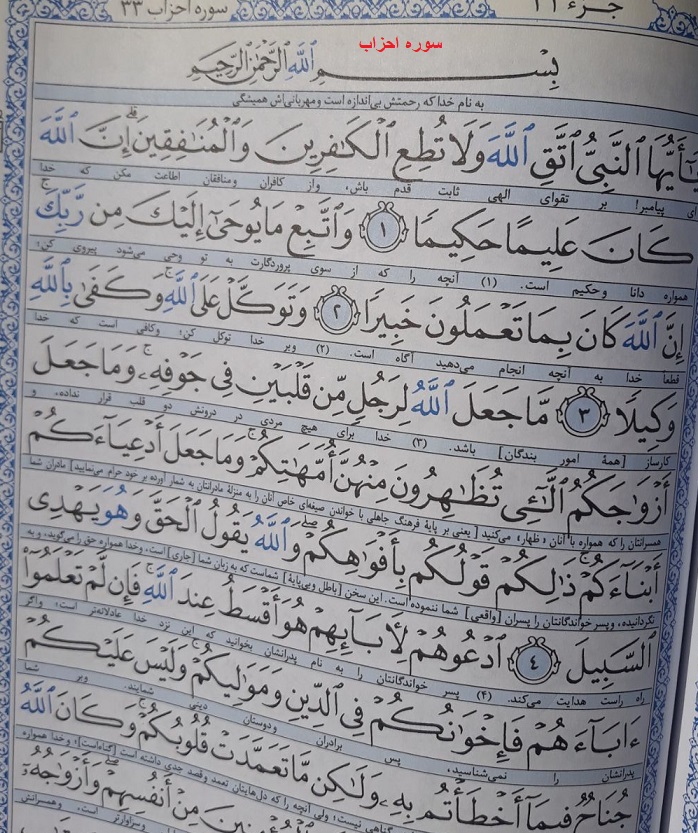 سوره احزاب ۳۳
جزء ۲۱
سوره احزاب
بِسْمِ ٱللَّهِ ٱلرَّحْمَٰنِ ٱلرَّحِيمِ
به نام خدا که رحمتش بی‌اندازه است و مهربانی‌اش همیشگی
يَٰٓأَيُّهَا ٱلنَّبِىُّ ٱتَّقِ ٱللَّهَ وَلَا تُطِعِ ٱلْكَٰفِرِينَ وَٱلْمُنَٰفِقِينَ ۗ إِنَّ ٱللَّهَ
ای پیامبر! بر تقوای الهی ثابت قدم باش، و از کافران و منافقان اطاعت مکن که خدا
كَانَ عَلِيمًا حَكِيمًا ١ وَٱتَّبِعْ مَا يُوحَىٰٓ إِلَيْكَ مِن رَّبِّكَ ۚ
همواره دانا و حکیم است. (۱) آنچه را که از سوی پروردگارت به تو وحی می‌شود پیروی کن؛
إِنَّ ٱللَّهَ كَانَ بِمَا تَعْمَلُونَ خَبِيرًا ٢ وَتَوَكَّلْ عَلَى ٱللَّهِ ۚ وَكَفَىٰ بِٱللَّهِ
قطعاً خدا به آنچه انجام می‌دهید آگاه است. (۲) و بر خدا توکل کن؛ و کافی است که خدا
وَكِيلًا ٣ مَّا جَعَلَ ٱللَّهُ لِرَجُلٍ مِّن قَلْبَيْنِ فِى جَوْفِهِۦ ۚ وَمَا جَعَلَ
کارساز [همهٔ امور بندگان] باشد. (۳) خدا برای هیچ مردی در درونش دو قلب قرار نداده، و
أَزْوَٰجَكُمُ ٱلَّٰٓـِٔى تُظَٰهِرُونَ مِنْهُنَّ أُمَّهَٰتِكُمْ ۚ وَمَا جَعَلَ أَدْعِيَآءَكُمْ
همسرانتان را که همواره با آنان «ظهار» می‌کنید [یعنی بر پایهٔ فرهنگ جاهلی با خواندن صیغه‌ای خاص آنان را به منزلهٔ مادرانتان به شمار آورده بر خود حرام می‌نمایید] مادران شما
أَبْنَآءَكُمْ ۚ ذَٰلِكُمْ قَوْلُكُم بِأَفْوَٰهِكُمْ ۖ وَٱللَّهُ يَقُولُ ٱلْحَقَّ وَهُوَ يَهْدِى
نگردانیده، و پسرخواندگانتان را پسران [واقعی] شما ننموده است. این سخن [باطل و بی‌پایهٔ] شماست که به زبان شما [جاری] است، و خدا همواره حق را می‌گوید، و به
ٱلسَّبِيلَ ٤ ٱدْعُوهُمْ لِءَابَآئِهِمْ هُوَ أَقْسَطُ عِندَ ٱللَّهِ ۚ فَإِن لَّمْ تَعْلَمُوٓا۟
راه راست هدایت می‌کند. (۴) پسر خواندگانتان را به نام پدرانشان بخوانید که این نزد خدا عادلانه‌تر است؛ و اگر
ءَابَآءَهُمْ فَإِخْوَٰنُكُمْ فِى ٱلدِّينِ وَمَوَٰلِيكُمْ ۚ وَلَيْسَ عَلَيْكُمْ
پدرانشان را نمی‌شناسید، پس برادران و دوستان دینی شمایند. و بر شما
جُنَاحٌ فِيمَآ أَخْطَأْتُم بِهِۦ وَلَٰكِن مَّا تَعَمَّدَتْ قُلُوبُكُمْ ۚ وَكَانَ ٱللَّهُ
گناهی نیست؛ ولی آنچه را که دل‌هایتان تعمد و قصد جدی داشته است [گناه است]، و خدا همواره
مِنْ أَنفُسِهِمْ ۖ وَأَزْوَٰجُهُۥٓ
و سزاوارتر است. و همسرانش